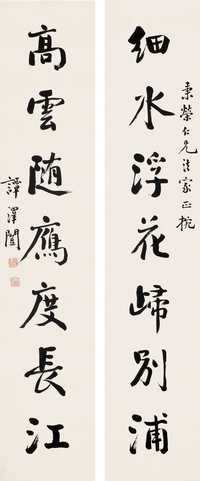 秉榮仁兄法家正
細水浮花歸別浦
高雲随鷹度長江
譚澤闓